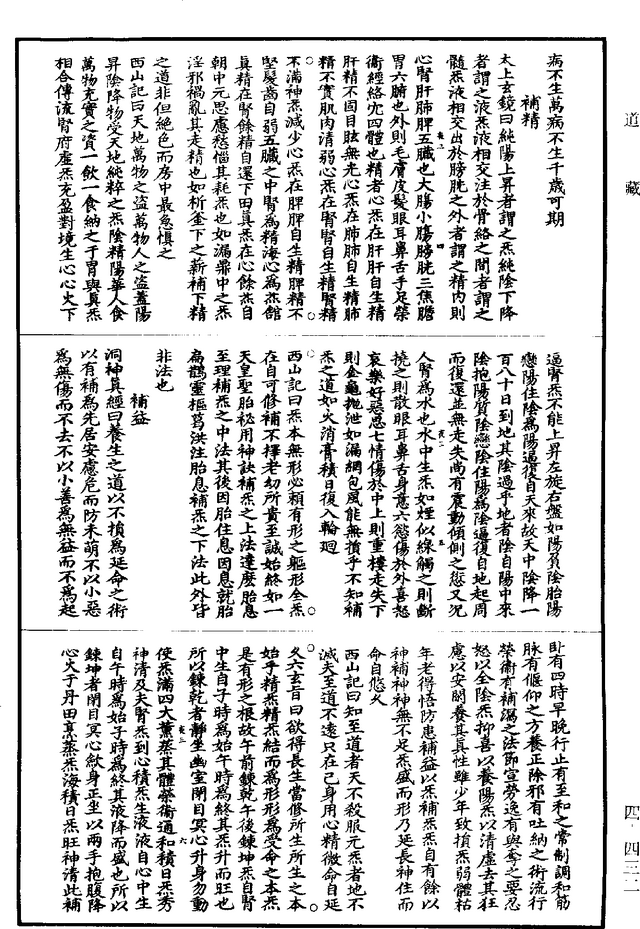 道藏
病不生萬病不生千歲可期
補精
太上玄鏡曰純陽上昇者謂之炁純陰下降
者謂之液炁液相交注於骨絡之間者謂之
髓炁液相交出於膀胱之外者謂之精內則
心腎肝肺脾五臟也大腸小腸膀胱三焦膽
胃六腑也外則毛膚皮髮眼耳鼻舌手足榮
衛經絡穴四體也精者心炁在肝肝自生精
肝精不固目眩無光心炁在肺肺自生精肺
精不實肌肉清弱心炁在腎腎自生精腎精
不滿神炁減少心炁在脾脾自生精脾精不
堅髮齒自弱五臟之中腎為精海心為炁館
真精在腎餘精自還下田真炁在心餘炁自
朝中元思慮愁惱其耗炁也如漏鼎中之炁
淫邪禍亂其走精也如析釜下之薪補下精
之道非但絕色而房中最急慎之
西山記曰天地萬物之盜萬物人之盜蓋陽
昇陰降物受天地純粹之炁陰精陽華人食
萬物充實之質一飲一食納之于胃與真炁
相合傳流腎府虛炁充盈對境生心心火下
逼腎炁不能上昇左旋右盤如陽負陰胎陽
戀陽住陰為陽逼復自天來故天中陰降一
百八十日到地其陰過乎地者陰自陽中來
陰抱陽質陰戀陰住陽為陰逼復自地起周
而復還並無走失尚有震動傾側之愆又況
人腎為水也水中生炁如煙似線觸之則斷
撓之則散眼耳鼻舌身意六慾傷於外喜怒
哀樂好惡思七情傷於中上則重樓走失下
則金龜拋泄如漏網包風能無損乎不知補
炁之道如火消膏積日復入輪廻
西山記曰炁本無形必賴有形之軀形全炁
在自可修補不擇老幼所貴至誠始終如一
天皇聖胎祕用神訣補炁之上法達麼胎息
至理補炁之中法其後因胎住息因息就胎
扁鵲靈樞葛洪注胎息補炁之下法此外皆
非法也
補益
洞神真經曰養生之道以不損為延命之術
以有補為先居安慮危而防未萌不以小惡
為無傷而不去不以小善為無益而不為起
臥有四時早晚行止有至和之常制調和筋
脉有偃仰之方養正除邪有吐納之術流行
榮衛有補瀉之法節宣勞逸有與奪之要忍
怒以全陰炁抑喜以養陽炁以清虛去其狂
慮以安閑養其真性雖少年致損炁弱體枯
年老得悟防患補益以炁補炁炁自有餘以
神補神神無不足炁盛而形乃延長神住而
命自悠久
西山記曰知至道者天不殺服元炁者地不
滅夫至道不遠只在己身用心精微命自延
久六玄旨曰欲得長生當修所生所生之本
始乎精炁精炁結而為形形為受命之本炁
是有形之根故午前鍊乾午後鍊坤炁自腎
中生自子時為始午時為終其炁升而旺也
所以鍊乾者靜坐幽室閉目冥心升身勿動
使炁滿四大薰蒸其體榮衛通和積日炁秀
神清及夫腎炁到心積炁生液液自心中生
自午時為始子時為終其液降而盛也所以
鍊坤者閉目冥心歛身正坐以兩手抱腹降
心火于丹田烹蒸炁海積日炁旺神清此補
四·四三二